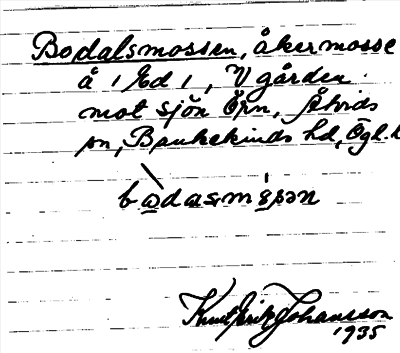 Bodalsmossen, åkermosse
å /Ed/, V gården
mot sjön Örn, Åtvids
sn, Bankekinds hd, Ögl.
bωdasmɷsən
Knut Erik Johansson
1935